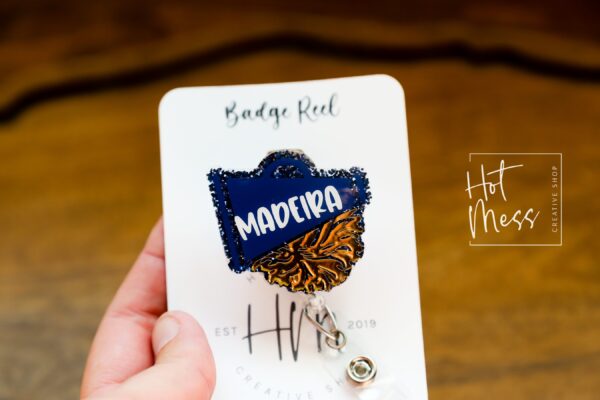 Badge Reel
MADEIRA
EST
2019
CREATIVE SHOP
Hot
Mess
CREATIVE SHOP